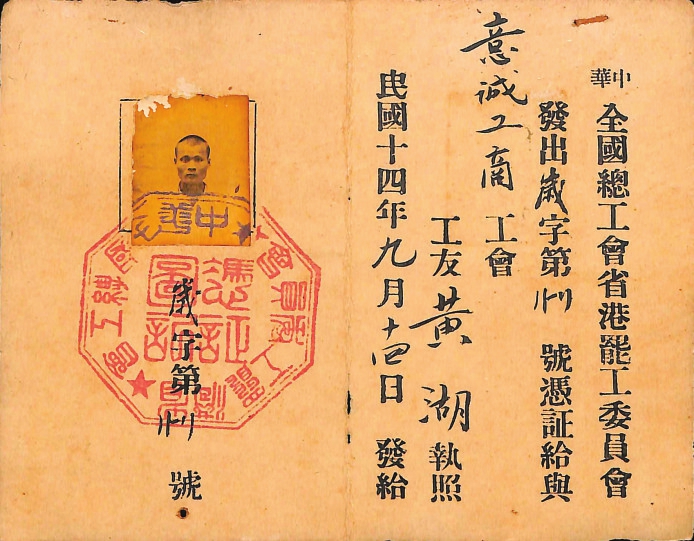 中華
全國總工會省港罷工委員會
發出歲字第 號憑証給與
意誠工商工會
工友黃湖執照
民國十四年九月十四日發給
歲字第 號